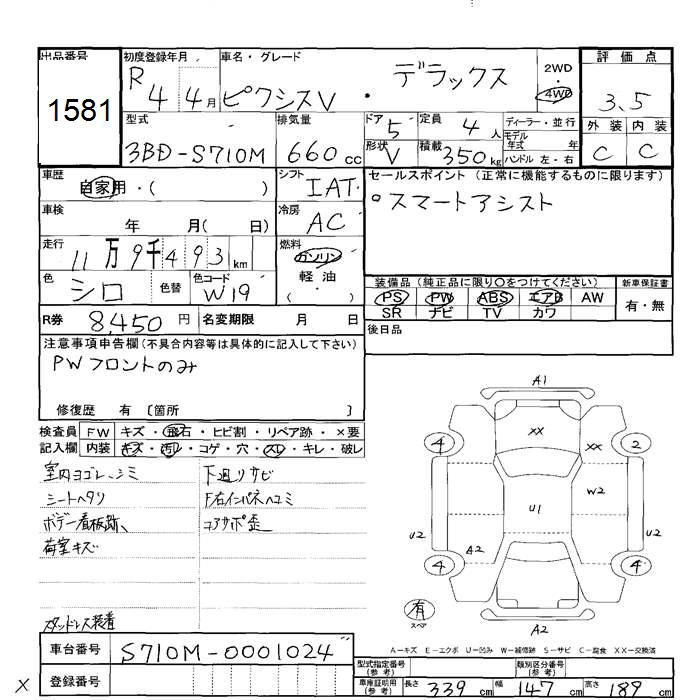 出品番号 初度登録年月 車名・グレード 2WD・4WD 評価点
1581 R4 4月 ピクシスV・デラックス 3.5
型式 排気量 ドア 5 定員 4人 ディーラー・並行 外装 内装
3BD-S710M 660cc 形状 V 積載 350kg モデル年式 年 ハンドル 左・右 C C
車歴 自家用・( ) シフト IAT セールスポイント (正常に機能するものに限ります)
車検 年 月( 日) 冷房 AC °スマートアシスト
走行 11万9千493km 燃料 ガソリン 軽油 ( )
色 シロ 色替 色コード W19 装備品 (純正品に限り○をつけてください) 新車保証書
PS PW ABS エアB AW 有・無
SR ナビ TV カワ
R券 8,450円 名変期限 月 日 後日品
注意事項申告欄(不具合内容等は具体的に記入して下さい)
PWフロントのみ
修復歴 有 〔箇所 〕
検査員 FW キズ・飛石・ヒビ割・リペア跡・×要
記入欄 内装 キズ・汚レ・コゲ・穴・スレ・キレ・破レ
室内ヨゴレ、シミ 下廻りサビ
シートヘタリ F右インパネヘコミ
ボデー看板跡、 コアサポ歪
荷室キズ
スタッドレス装着
A1
4 XX XX 2
W2
U1
U2 A2 U2
4 4
有 スペア A2
A−キズ E−エクボ U−凹み W−補修跡 S−サビ C−腐食 XX−交換済
車台番号 S710M-0001024
登録番号
型式指定番号(参考) 類別区分番号(参考)
車庫証明用(参考) 長さ 339cm 幅 147cm 高さ 189cm
X